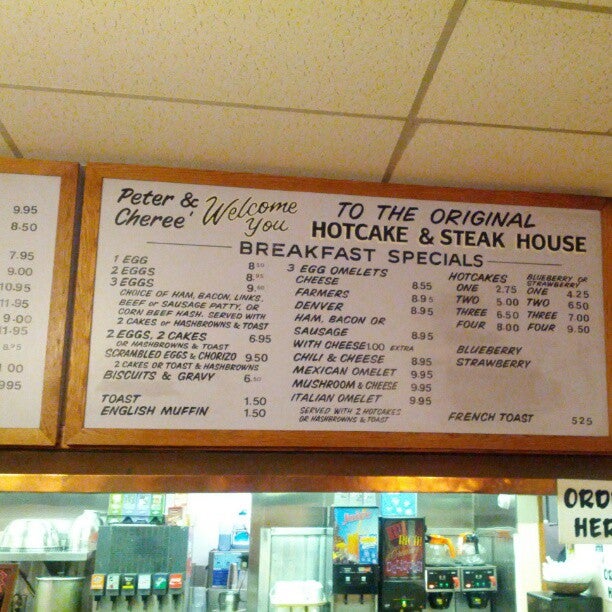 9.95
8.50
7.95
9.00
10.95
11.95
9.00
11.95
8.95
1 00
9.95
Peter & Cheree' Welcome You
TO THE ORIGINAL
HOTCAKE & STEAK HOUSE
BREAKFAST SPECIALS
1 EGG 8.50
2 EGGS 8.95
3 EGGS 9.60
CHOICE OF HAM, BACON, LINKS,
BEEF or SAUSAGE PATTY, OR
CORN BEEF HASH. SERVED WITH
2 CAKES or HASHBROWNS & TOAST
2 EGGS, 2 CAKES 6.95
OR HASHBROWNS & TOAST
SCRAMBLED EGGS & CHORIZO 9.50
2 CAKES OR TOAST & HASHBROWNS
BISCUITS & GRAVY 6.50
TOAST 1.50
ENGLISH MUFFIN 1.50
3 EGG OMELETS
CHEESE 8.55
FARMERS 8.95
DENVER 8.95
HAM, BACON OR
SAUSAGE 8.95
WITH CHEESE 1.00 EXTRA
CHILI & CHEESE 8.95
MEXICAN OMELET 9.95
MUSHROOM & CHEESE 9.95
ITALIAN OMELET 9.95
SERVED WITH 2 HOTCAKES
OR HASHBROWNS & TOAST
HOTCAKES
ONE 2.75
TWO 5.00
THREE 6.50
FOUR 8.00
BLUEBERRY OR
STRAWBERRY
ONE 4.25
TWO 6.50
THREE 7.00
FOUR 9.50
BLUEBERRY
STRAWBERRY
FRENCH TOAST 525
ORD
HER